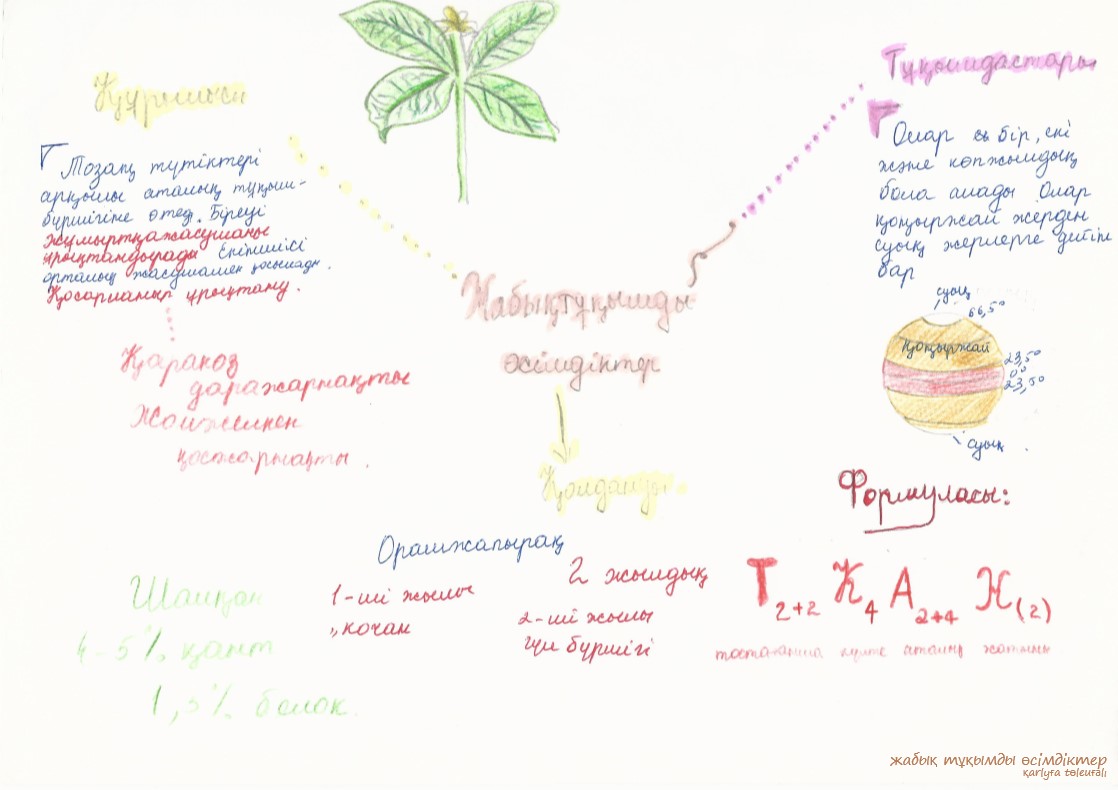 Құрылысы
Тозаң түтіктері
арқылы аталық тұқым-
бүршігіне өтеді. Біреуі
жұмыртқажасушаны
ұрықтандырады Екіншісі
орталық жасушамен қосылады.
Қосарланып ұрықтану.
Қаракөз
даражарнақты
қосжарнақты.
Тұқымдастары
Олар бір, екі
және көпжылдық
бола алады Олар
қоңыржай жерден
суық жерлерге дейін
бар
суық
66,5°
Қоңыржай
23,5°
0°
23,5°
суық
Жабықтұқымды
өсімдіктер
Қолдануы.
Орамжапырақ
Шалқан
4-5% қант
1,5% белок
1-ші жылы
"кочан
2 жылдық
2-ші жылы
гүл бүршігі
Формуласы:
Т2+2 К4 А2+4 Ж(2)
тостағанша күлте аталық жатыны
жабық тұқымды өсімдіктер
қарлұға төлеуғалі